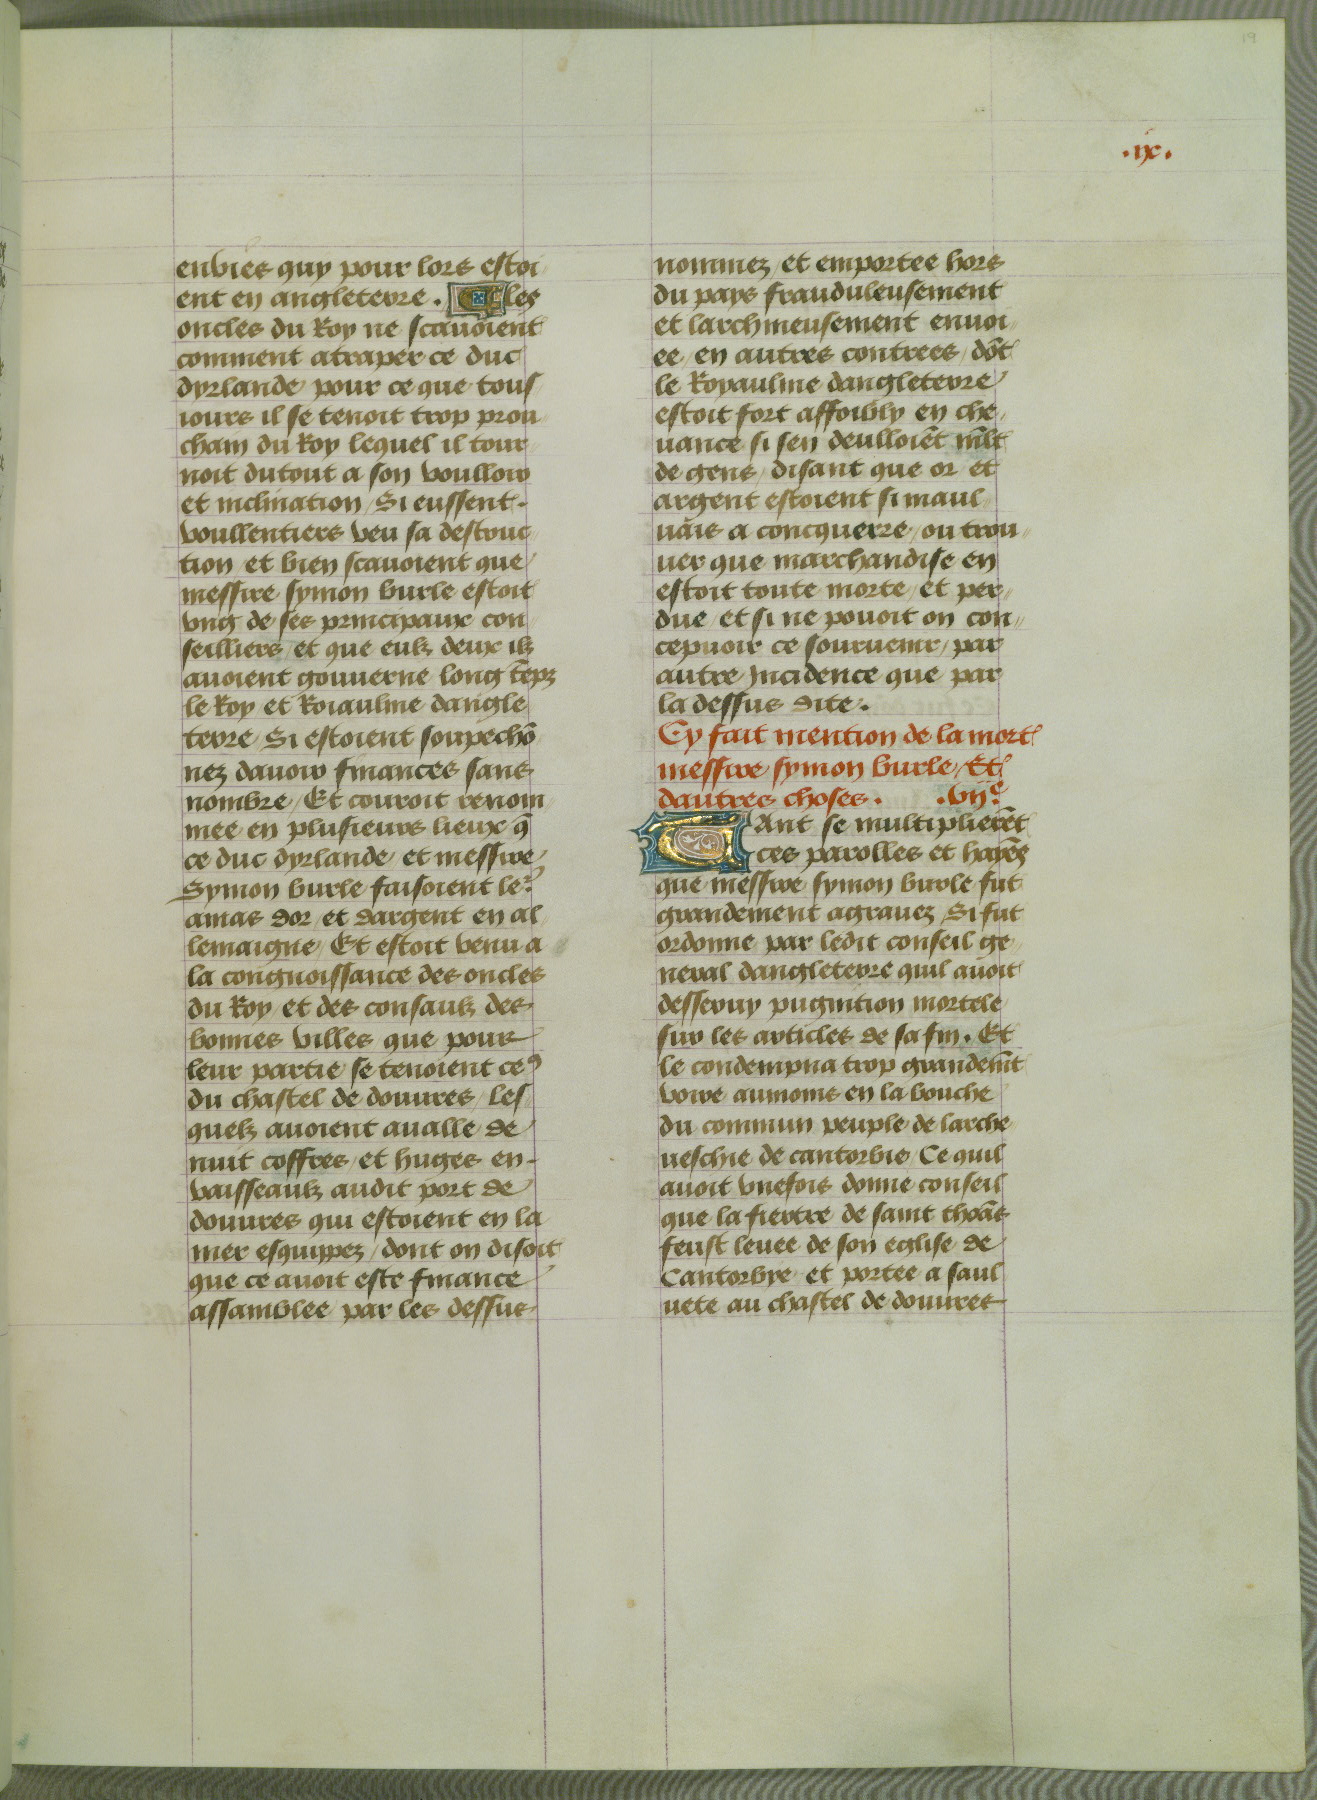 19
.ix.
enbies quy pour lors estoi
ent en angleterre . Les
oncles du Roy ne scauoient
comment atraper ce duc
dyrlande / pour ce que tous
iours il se tenoit trop prou
chain du Roy lequel il tour
noit du tout a son voulloir
et inclination / Si eussent
voullentiers veu sa destruc
tion et bien scauoient que
messire symon burle estoit
vng de ses principaux con
seilliers / et que eulz deux ilz
auoient gouuerne long tēpz
le Roy et Roiaulme dangle
terre Si estoient soupechō
nez dauoir finances sans
nombre / Et couroit renom
mee en plusieurs lieux q̄
ce duc dyrlande / et messire
Symon burle faisoient le᷑
amas dor et dargent en al
lemaigne / Et estoit venu a
la congnoissance des oncles
du Roy et des consaulz des
bonnes villes que pour
leur partie se tenoient ceꝰ
du chastel de douures / les
quelz auoient aualle de
nuit coffres / et huges en
vaisseaulz audit port de
douures qui estoient en la
mer esquippez / dont on disoit
que ce auoit este finance
assamblee par les dessus
nommez / et emportee hors
du pays frauduleusement
et larchineusement enuoi
ee / en autres contrees / dōt
le Royaulme dangleterre
estoit fort affoibly en che
uance si sen deulloiēt mlt̄
de gens / disant que or et
argent estoient si maul
uais a concquerre / ou trou
uer que marchandise en
estoit toute morte / et per
due / et si ne pouoit on con
cepuoir ce souruenir / par
autre Incidence que par
la dessus dite .
Cy fait mention de la mort
messire symon burle / Et
dautres choses . .vijᵉ.
TAnt se multiplierēt
ces parolles et haynēs
que messire symon burle fut
grandement agrauez / Si fut
ordonne par ledit conseil ge
neral dangleterre quil auoit
desseruy pugnition mortele
sur les articles de sa fin . Et
le condempna trop grandemt̄
voire aumoins en la bouche
du commun peuple de larche
ueschie de cantorbie / Ce quil
auoit vnefois donne conseil
que la fiertre de saint thoās
feust leuee de son eglise de
Cantorbye / et portee a saul
uete au chastel de douures